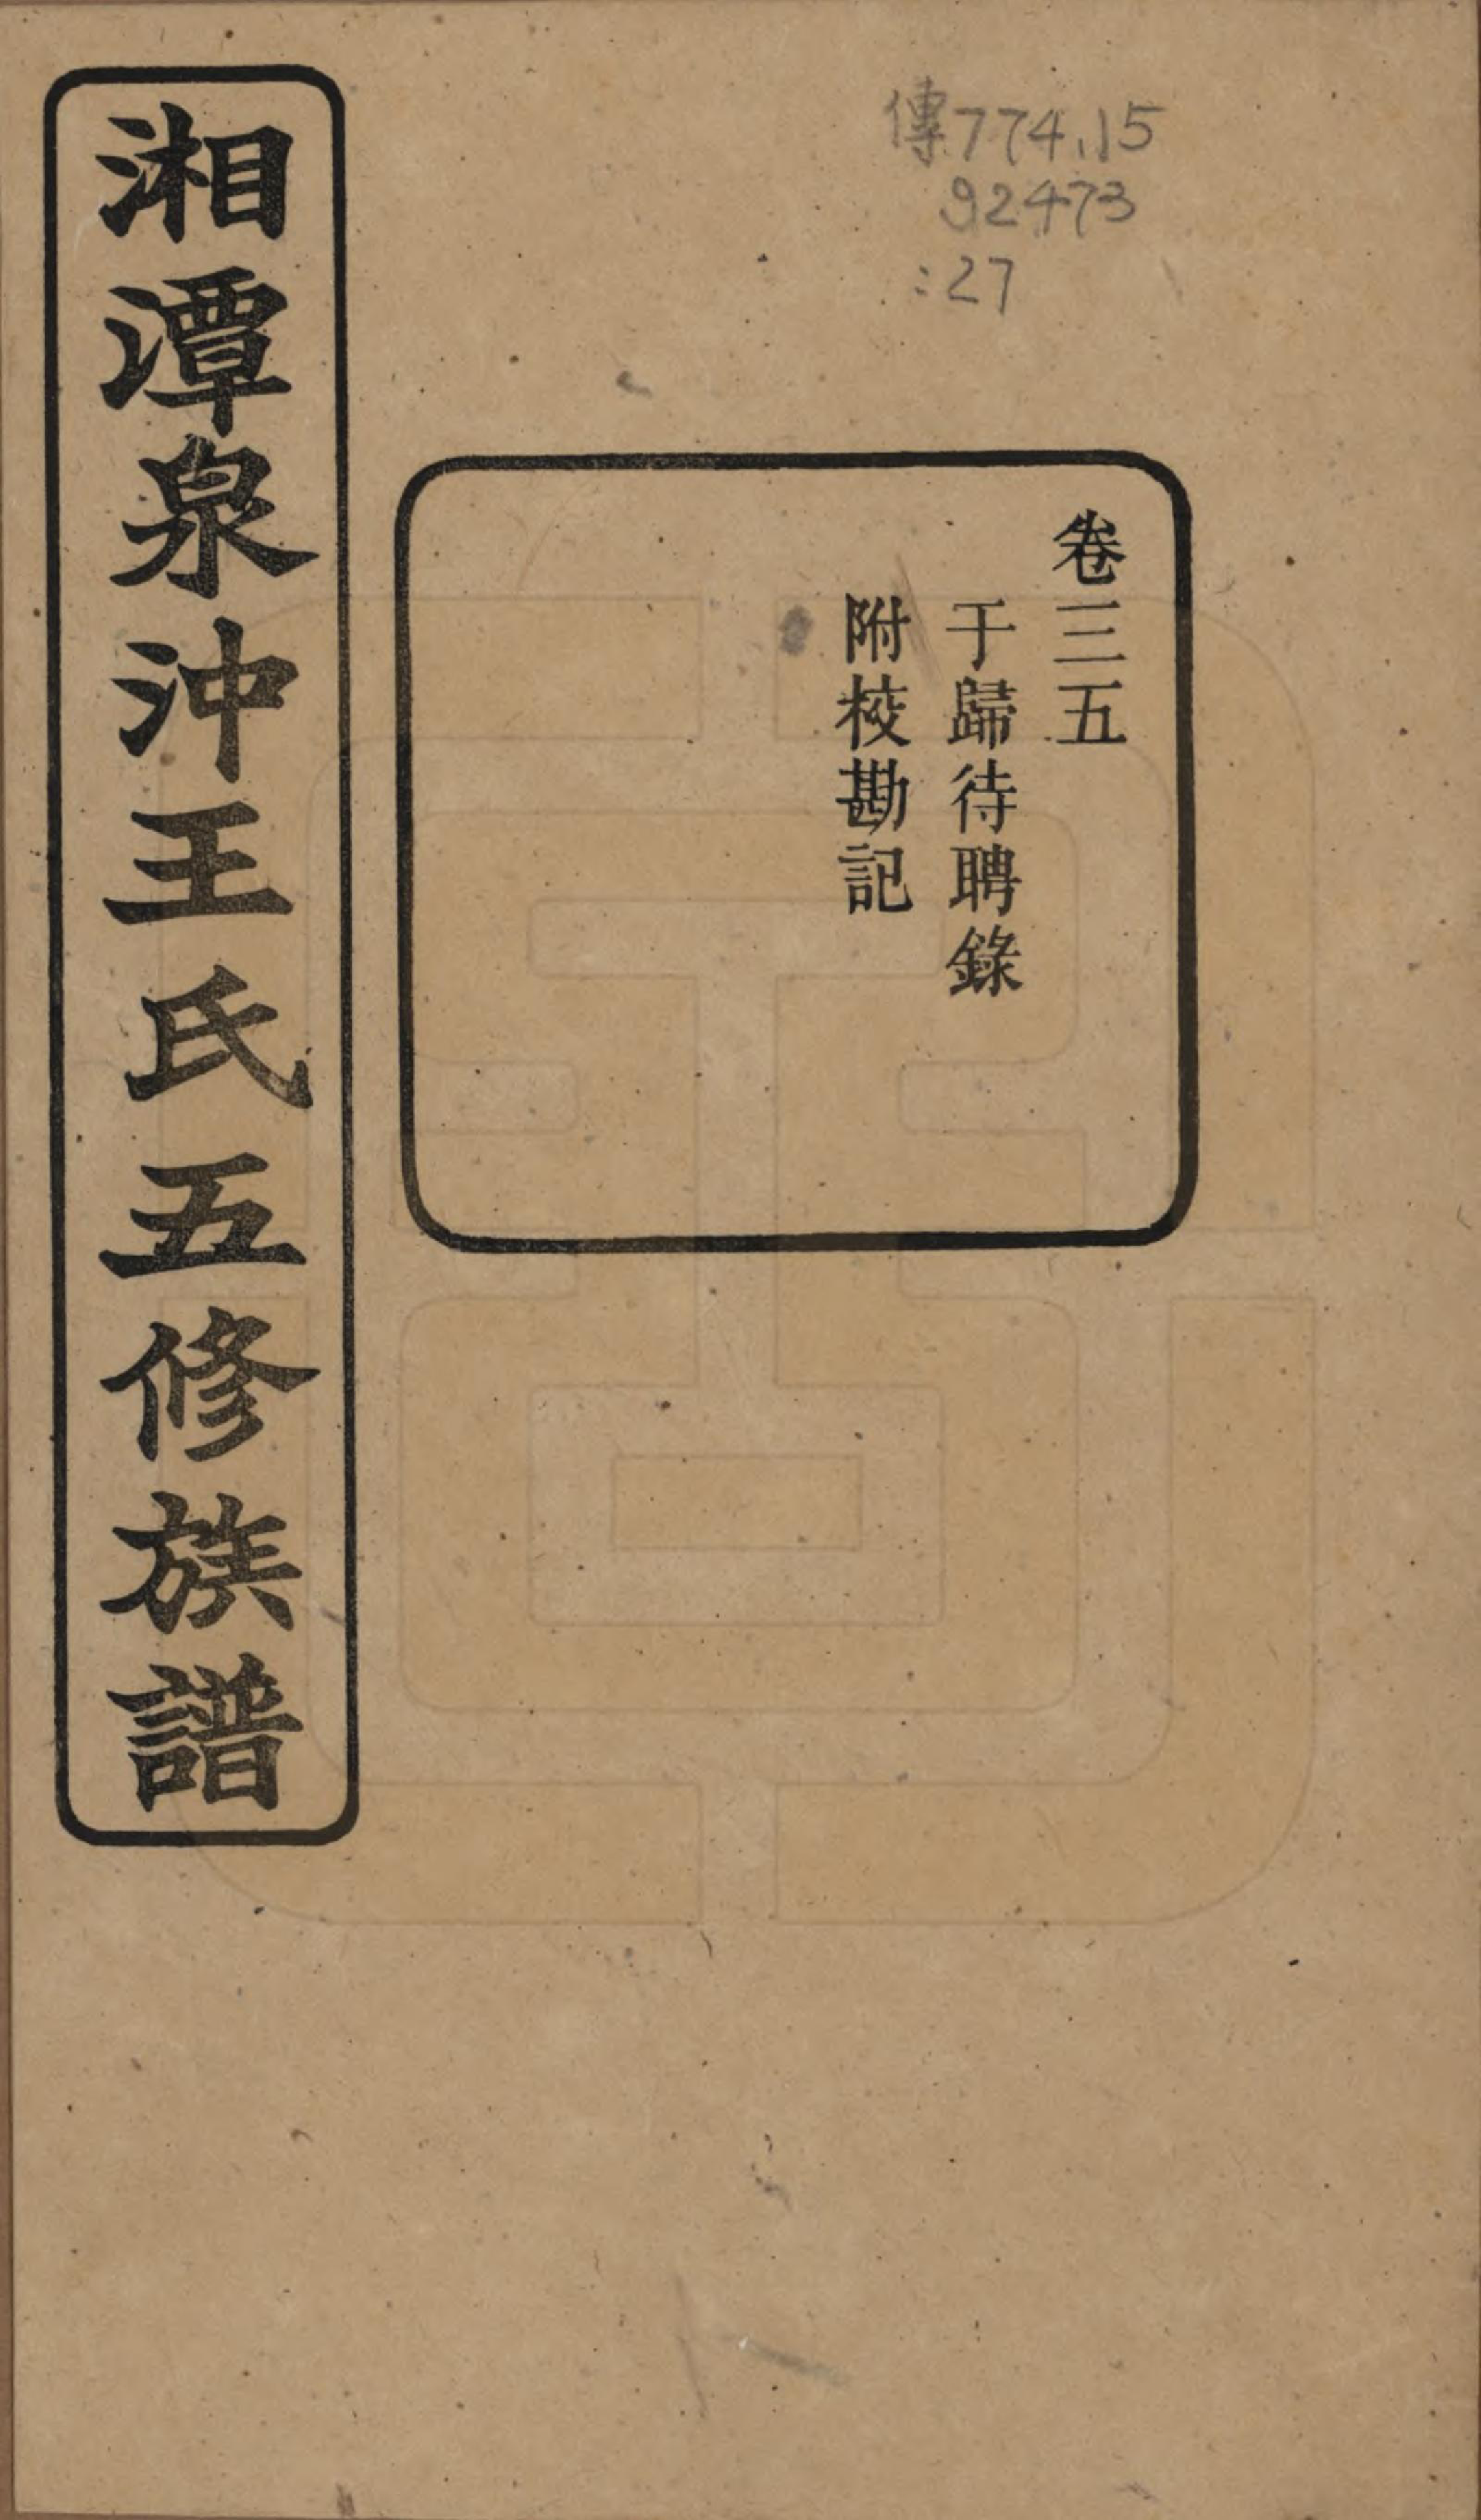 傳774.15
92473
:27
卷三五
于歸待聘錄
附校勘記
湘潭泉沖王氏五修族譜